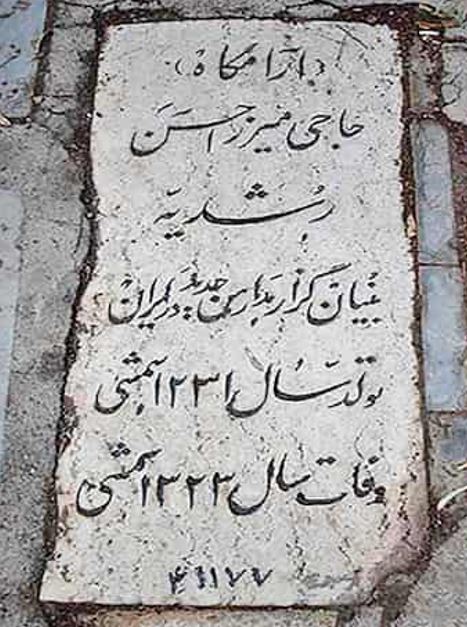 (آرامگاه)
حاجی میرزاحسن
رشدیه
بنیان گزار مدارس جدید در ایران
تولد سال ۱۲۳۱ شمسی
وفات سال ۱۳۲۳ شمسی
۴۱۱۷۷